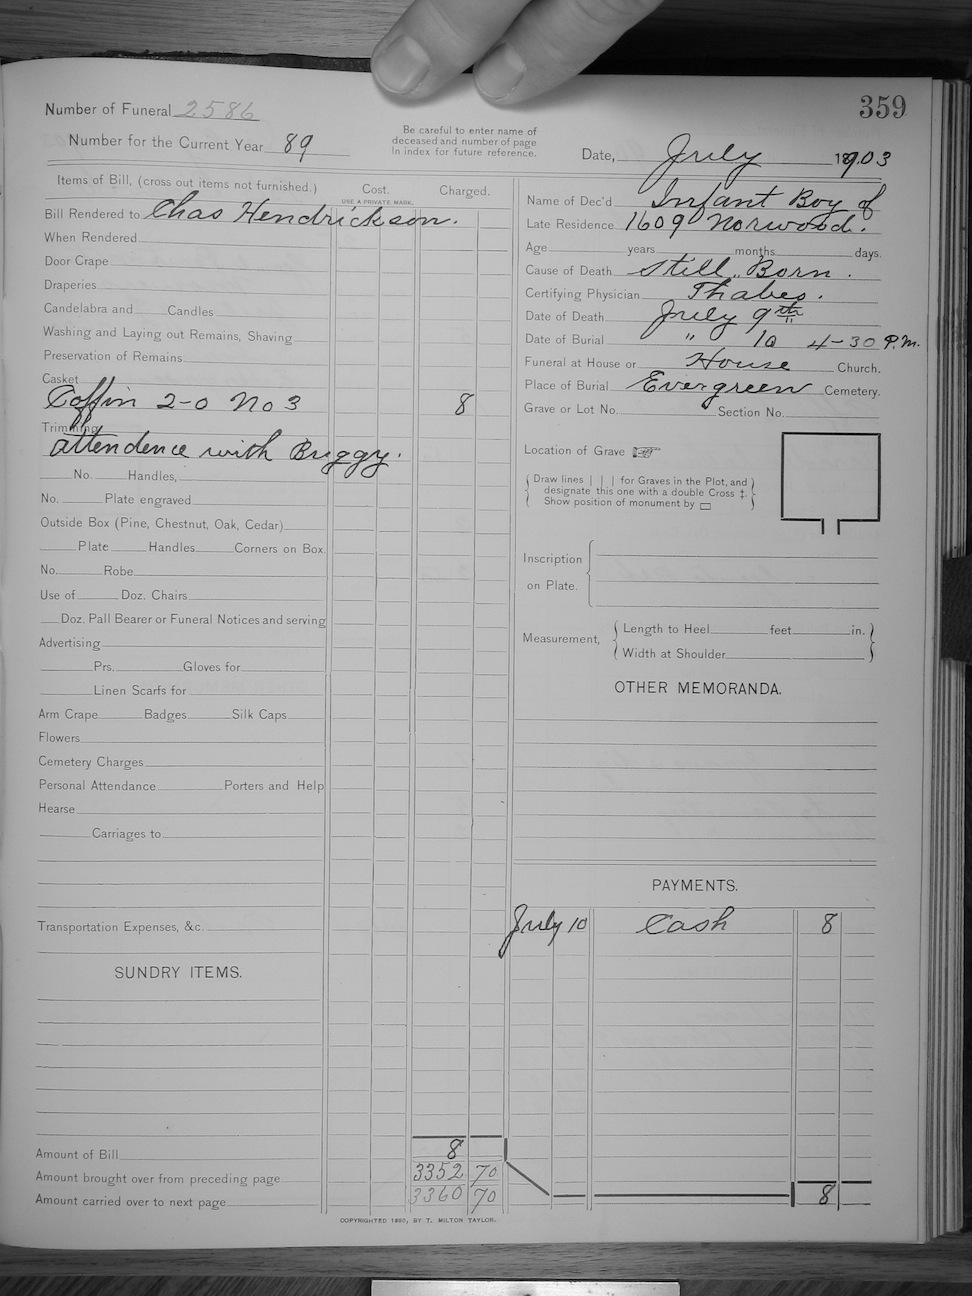 359
Number of Funeral 2586
Number for the Current Year 89
Be careful to enter name of
deceased and number of page
In index for future reference.
Date, July 1903
Items of Bill, (cross out items not furnished.) Cost. Charged.
USE A PRIVATE MARK.
Bill Rendered to Chas Hendrickson.
When Rendered
Door Crape
Draperies
Candelabra and Candles
Washing and Laying out Remains, Shaving
Preservation of Remains
Casket
Coffin 2-0 No 3 8
Trimming
attendence with Buggy.
No. Handles,
No. Plate engraved
Outside Box (Pine, Chestnut, Oak, Cedar)
Plate Handles Corners on Box.
No. Robe
Use of Doz. Chairs
Doz. Pall Bearer or Funeral Notices and serving
Advertising
Prs. Gloves for
Linen Scarfs for
Arm Crape Badges Silk Caps
Flowers
Cemetery Charges
Personal Attendance Porters and Help
Hearse
Carriages to
Transportation Expenses, &c.
SUNDRY ITEMS.
Amount of Bill 8
Amount brought over from preceding page 3352 70
Amount carried over to next page 3360 70
Name of Dec'd Infant Boy of
Late Residence 1609 Norwood.
Age years months days.
Cause of Death Still Born.
Certifying Physician Thabes.
Date of Death July 9th
Date of Burial " 10 " 4-30 P.M.
Funeral at House or House Church.
Place of Burial Evergreen Cemetery.
Grave or Lot No. Section No.
Location of Grave
Draw lines | | | for Graves in the Plot, and
designate this one with a double Cross ‡.
Show position of monument by ▭
Inscription
on Plate.
Measurement, Length to Heel feet in.
Width at Shoulder
OTHER MEMORANDA.
PAYMENTS.
July 10 Cash 8
8
COPYRIGHTED 1890, BY T. MILTON TAYLOR.